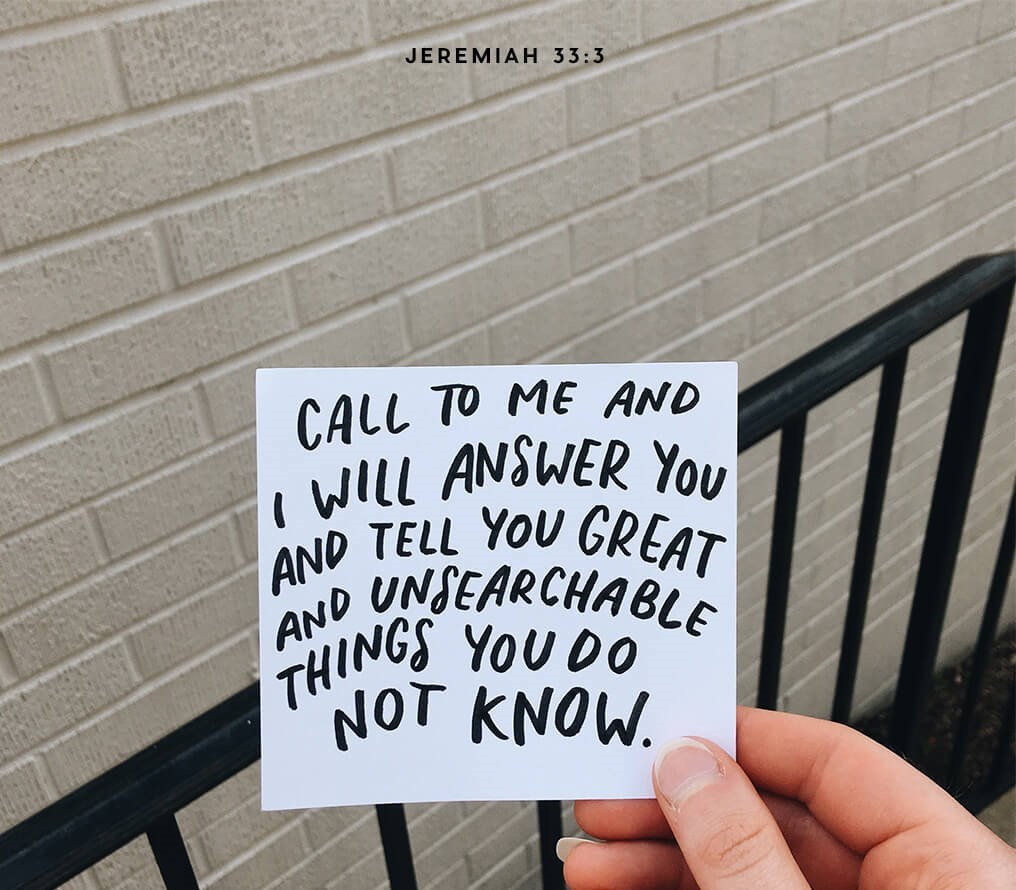 JEREMIAH 33:3
CALL TO ME AND
I WILL ANSWER YOU
AND TELL YOU GREAT
AND UNSEARCHABLE
THINGS YOU DO
NOT KNOW.